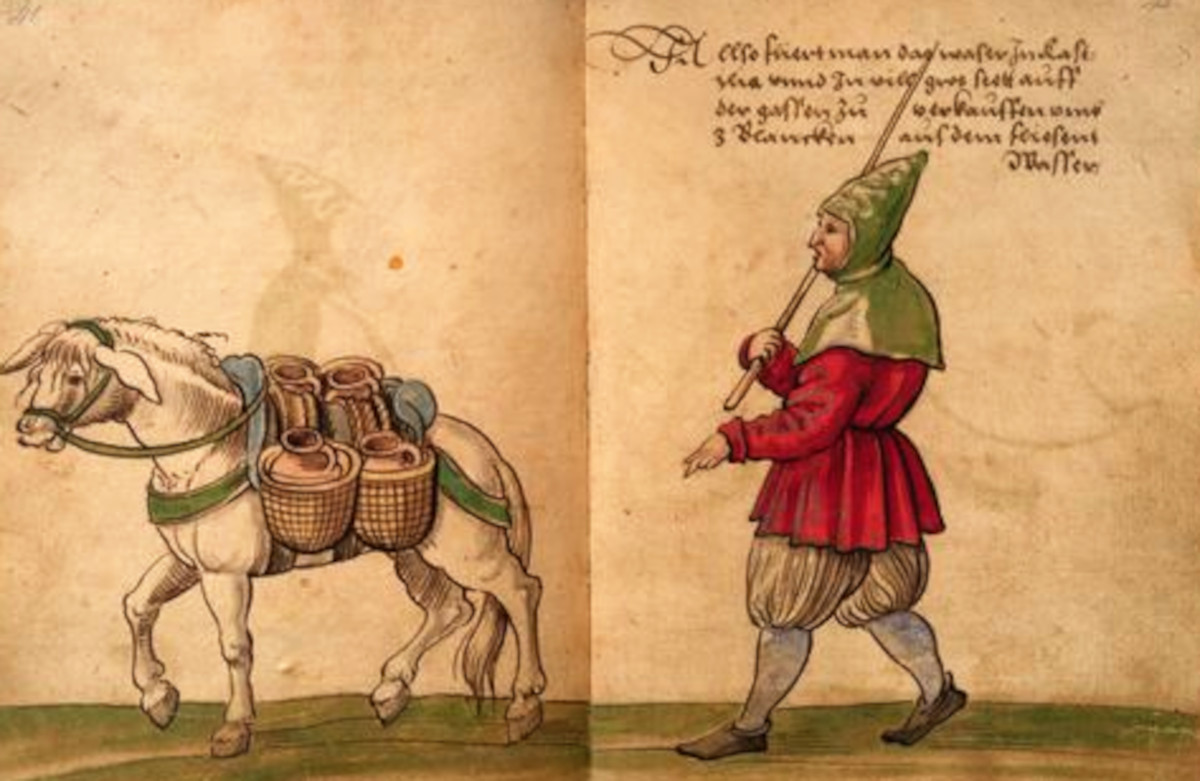 Allso füertman das waser In Kast
ilia vnnd Zu vill gros stett auff
der gassen Zu verkauffen vmb
3 Blancken aus dem fliesent
Wasser